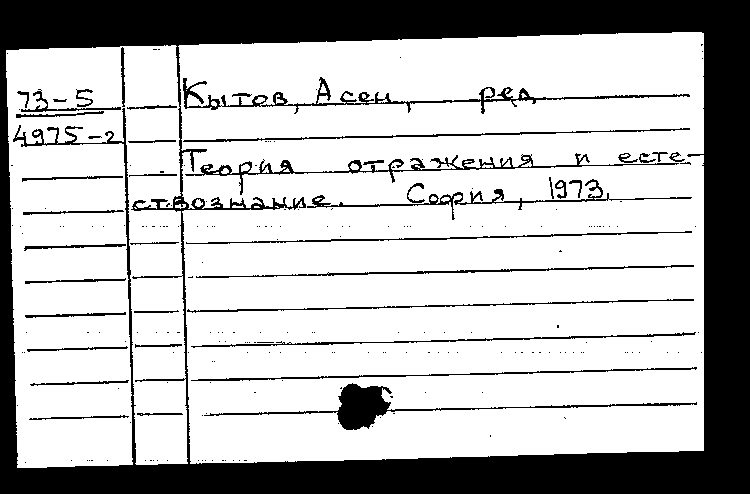 73-5
Кытов, Асен, ред.
4975-2
Теория отражения и есте-
ствознание. София, 1973.